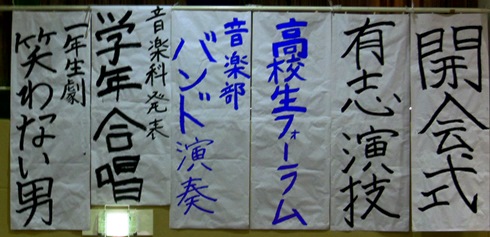 開会式
有志演技
高校生フォーラム
音楽部
バンド演奏
音楽科発表
学年合唱
一年生劇
笑わない男